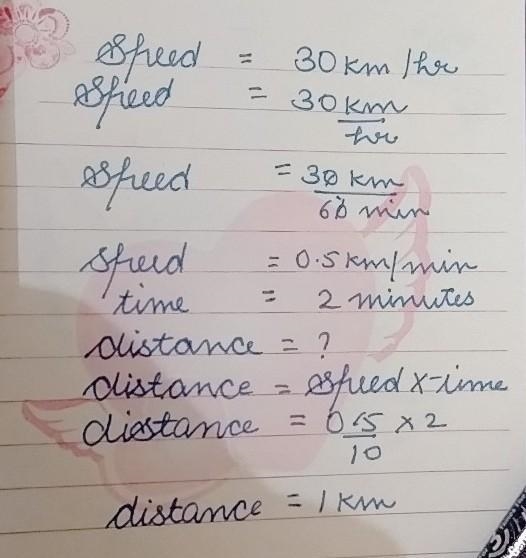 Speed = 30 km/hr
Speed = 30 km/hr
Speed = 30 km/60 min
speed = 0.5 km/min
time = 2 minutes
distance = ?
distance = speed x time
distance = 0.5/10 x 2
distance = 1 km